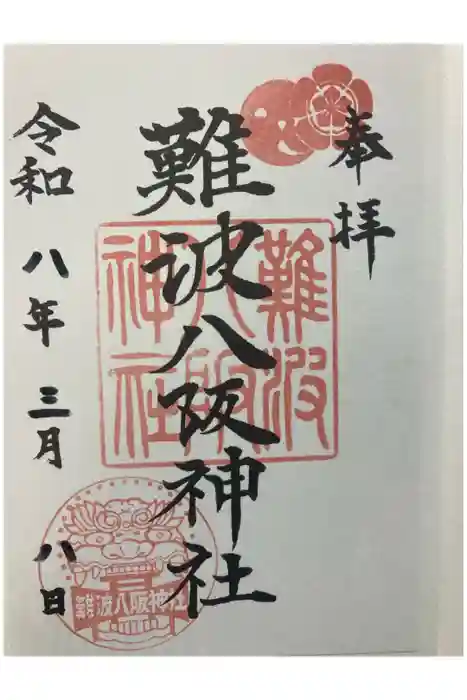 奉拝
難波八阪神社
難波八阪神社
令和八年三月八日
難波八阪神社